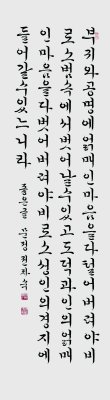 부귀와공명에얽매인마음을다털어버려야비
로소범속에서벗어날수있고도덕과인의얽매
인마음을다벗어버려야비로소성인의경지에
들어갈수있느니라 좋은글